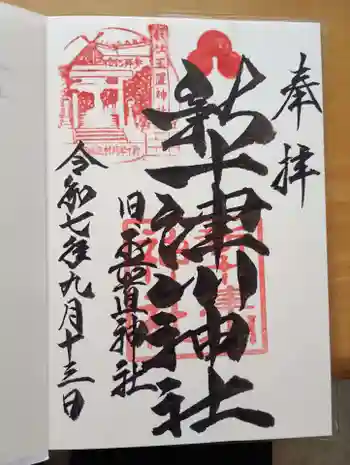 奉拝
新十津川神社
旧玉置神社
令和七年九月十三日